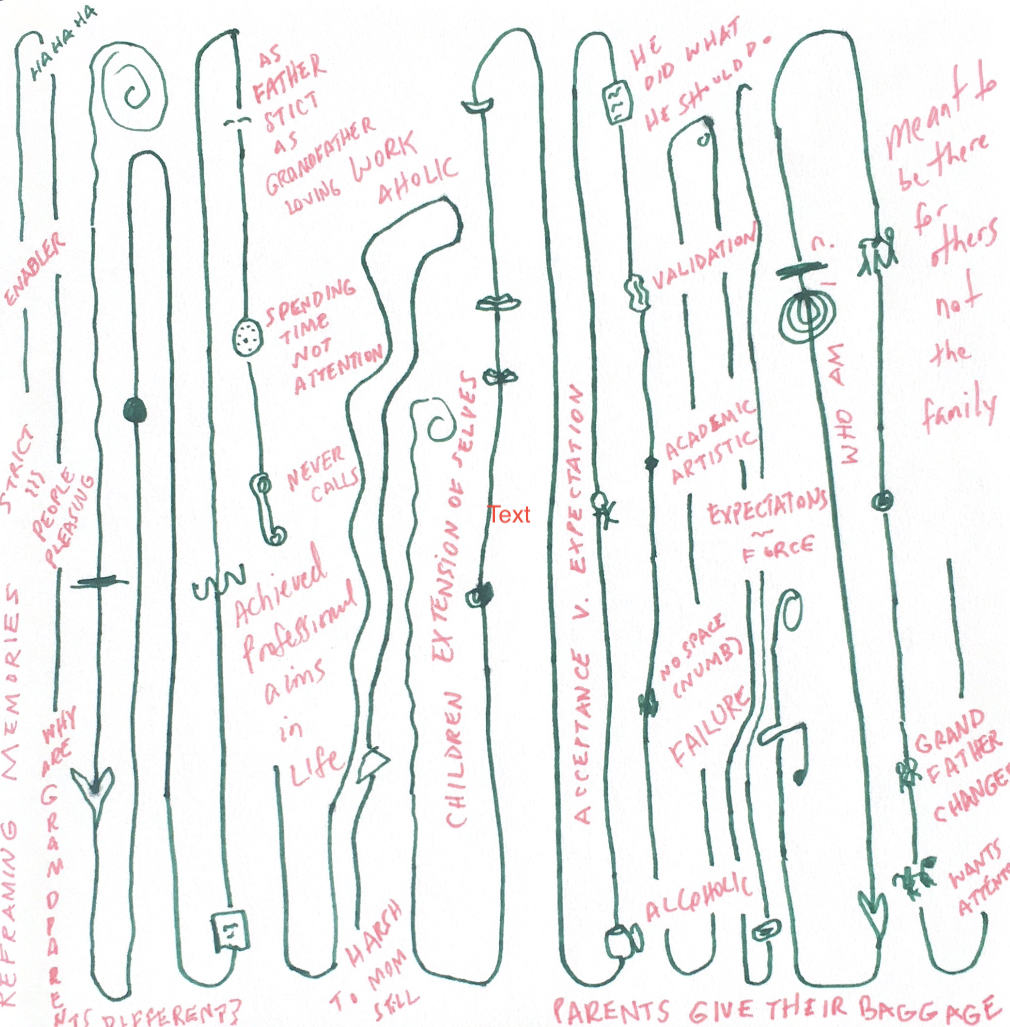 HAHAHA
ENABLER
STRICT
VS
PEOPLE
PLEASING
REFRAMING MEMORIES
WHY
ARE
GRANDPARENTS DIFFERENT?
AS
FATHER
STICT
AS
GRANDFATHER
LOVING
WORK
AHOLIC
SPENDING
TIME
NOT
ATTENTION
NEVER
CALLS
Achieved
Professional
aims
in
Life
HARSH
TO MOM
STILL
CHILDREN EXTENSION OF SELVES
Text
ACCEPTANCE V. EXPECTATION
HE
DID WHAT
HE SHOULD.
VALIDATION
ACADEMIC
ARTISTIC
EXPECTATIONS
~
FORCE
NO SPACE
(NUMB)
FAILURE
ALCOHOLIC
WHO AM I ?
Meant to
be there
for
others
not
the
family
GRAND
FATHER
CHANGES
WANTS
PARENTS GIVE THEIR BAGGAGE